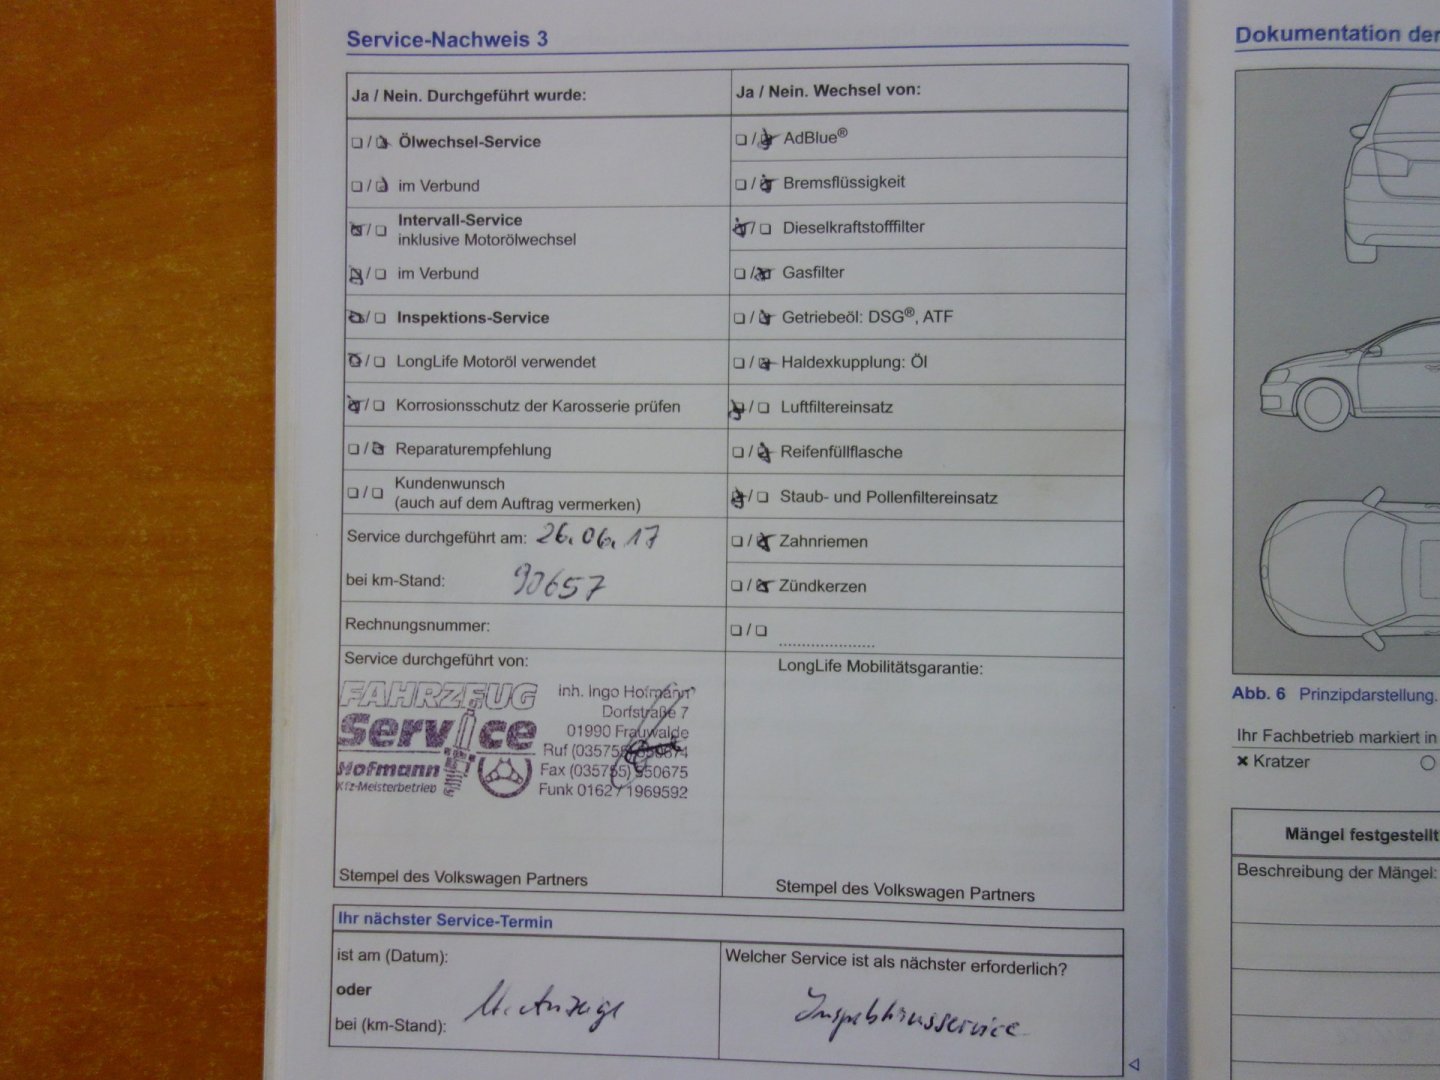 Service-Nachweis 3
Ja / Nein. Durchgeführt wurde:
Ölwechsel-Service
im Verbund
Intervall-Service
inklusive Motorölwechsel
im Verbund
Inspektions-Service
LongLife Motoröl verwendet
Korrosionsschutz der Karosserie prüfen
Reparaturempfehlung
Kundenwunsch
(auch auf dem Auftrag vermerken)
Service durchgeführt am: 26.06.17
bei km-Stand: 90657
Rechnungsnummer:
Service durchgeführt von:
FAHRZEUG
Service
Hofmann
Kfz-Meisterbetrieb
Inh. Ingo Hofmann
Dorfstraße 7
01990 Frauwalde
Ruf (035755)
Fax (035755) 550675
Funk 0162 / 1969592
Stempel des Volkswagen Partners
Ja / Nein. Wechsel von:
AdBlue®
Bremsflüssigkeit
Dieselkraftstofffilter
Gasfilter
Getriebeöl: DSG®, ATF
Haldexkupplung: Öl
Luftfiltereinsatz
Reifenfüllflasche
Staub- und Pollenfiltereinsatz
Zahnriemen
Zündkerzen
LongLife Mobilitätsgarantie:
Stempel des Volkswagen Partners
Ihr nächster Service-Termin
ist am (Datum):
oder
bei (km-Stand): Anzeige
Welcher Service ist als nächster erforderlich?
Inspektionsservice
Dokumentation der
Abb. 6 Prinzipdarstellung.
Ihr Fachbetrieb markiert in
Kratzer
Mängel festgestellt
Beschreibung der Mängel: